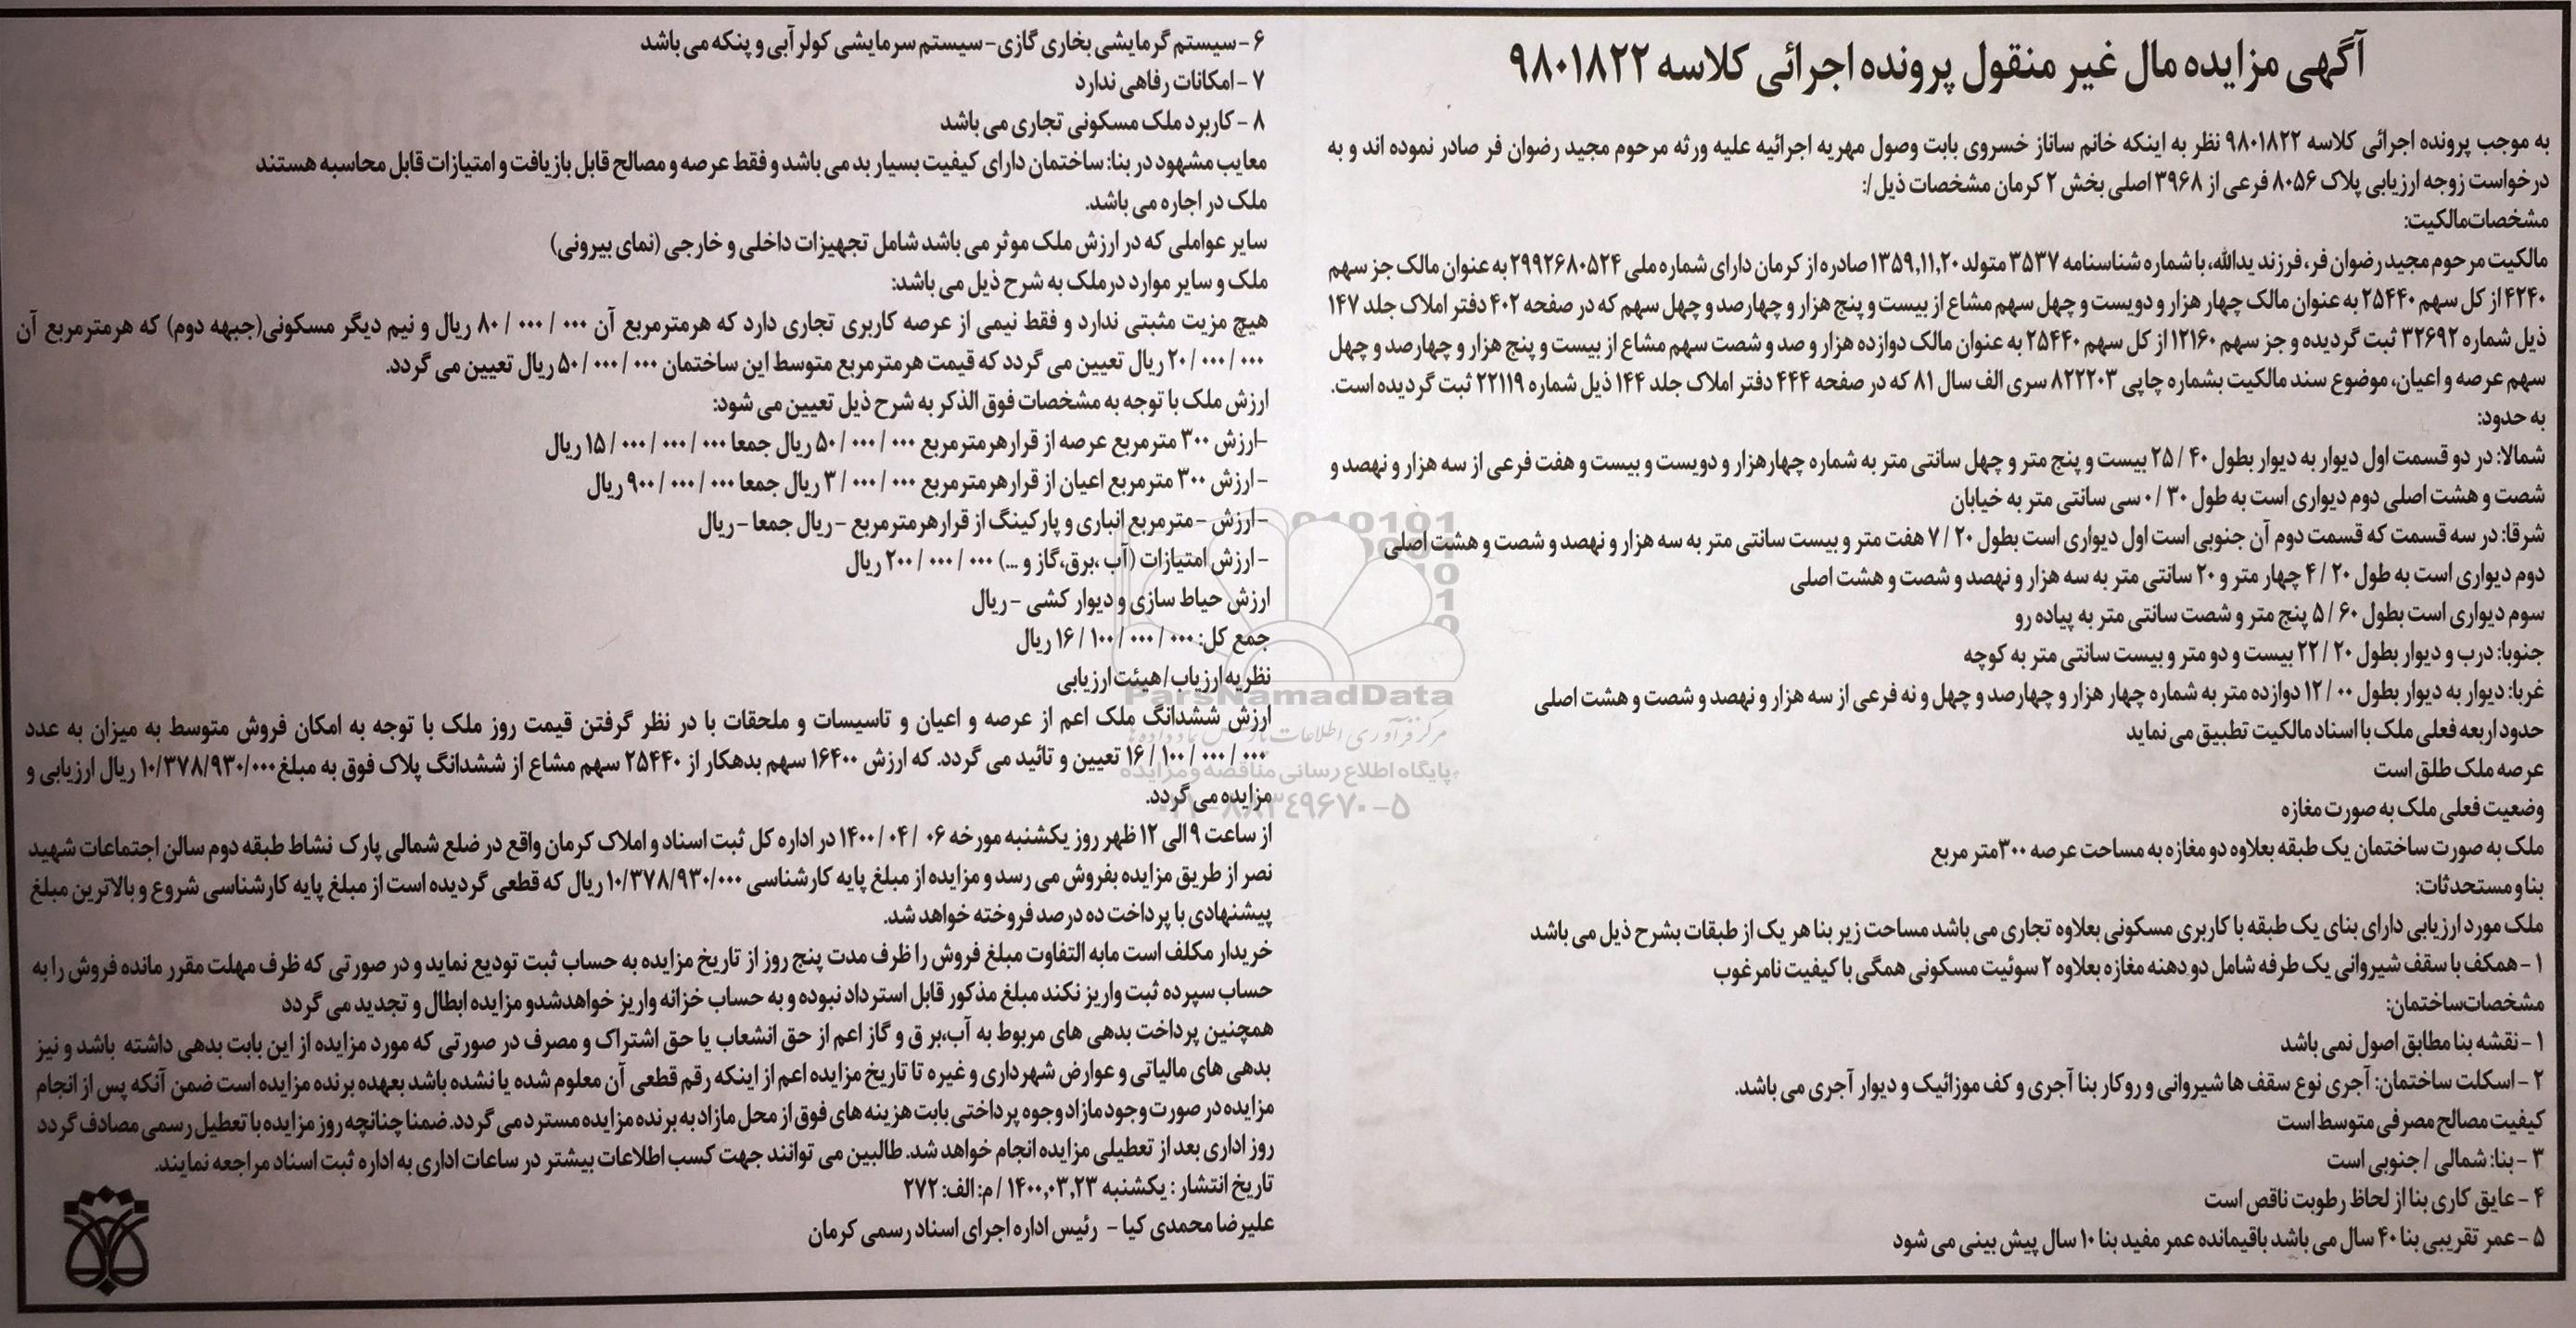 آگهی مزایده مال غیر منقول پرونده اجرائی کلاسه ۹۸۰۱۸۲۲
به موجب پرونده اجرائی کلاسه ۹۸۰۱۸۲۲ نظر به اینکه خانم ساناز خسروی بابت وصول مهریه اجرائیه علیه ورثه مرحوم مجید رضوان فر صادر نموده اند و به
درخواست زوجه ارزیابی پلاک ۸۰۵۶ فرعی از ۳۹۶۸ اصلی بخش ۲ کرمان مشخصات ذیل/:
مشخصات‌مالکیت:
مالکیت مرحوم مجید رضوان فر، فرزند یدالله، با شماره شناسنامه ۳۵۳۷ متولد ۱۳۵۹,۱۱,۲۰ صادره از کرمان دارای شماره ملی ۲۹۹۲۶۸۰۵۲۴ به عنوان مالک جز سهم
۴۲۴۰ از کل سهم ۲۵۴۴۰ به عنوان مالک چهار هزار و دویست و چهل سهم مشاع از بیست و پنج هزار و چهارصد و چهل سهم که در صفحه ۴۰۲ دفتر املاک جلد ۱۴۷
ذیل شماره ۳۲۶۹۲ ثبت گردیده و جز سهم ۱۲۱۶۰ از کل سهم ۲۵۴۴۰ به عنوان مالک دوازده هزار و صد و شصت سهم مشاع از بیست و پنج هزار و چهارصد و چهل
سهم عرصه و اعیان، موضوع سند مالکیت بشماره چاپی ۸۲۲۲۰۳ سری الف سال ۸۱ که در صفحه ۴۴۴ دفتر املاک جلد ۱۴۴ ذیل شماره ۲۲۱۱۹ ثبت گردیده است.
به حدود:
شمالا: در دو قسمت اول دیوار به دیوار بطول ۴۰ / ۲۵ بیست و پنج متر و چهل سانتی متر به شماره چهارهزار و دویست و بیست و هفت فرعی از سه هزار و نهصد و
شصت و هشت اصلی دوم دیواری است به طول ۳۰ / ۰ سی سانتی متر به خیابان
شرقا: در سه قسمت که قسمت دوم آن جنوبی است اول دیواری است بطول ۲۰ / ۷ هفت متر و بیست سانتی متر به سه هزار و نهصد و شصت و هشت اصلی
دوم دیواری است به طول ۲۰ / ۴ چهار متر و ۲۰ سانتی متر به سه هزار و نهصد و شصت و هشت اصلی
سوم دیواری است بطول ۶۰ / ۵ پنج متر و شصت سانتی متر به پیاده رو
جنوبا: درب و دیوار بطول ۲۰ / ۲۲ بیست و دو متر و بیست سانتی متر به کوچه
غربا: دیوار به دیوار بطول ۰۰ / ۱۲ دوازده متر به شماره چهار هزار و چهارصد و چهل و نه فرعی از سه هزار و نهصد و شصت و هشت اصلی
حدود اربعه فعلی ملک با اسناد مالکیت تطبیق می نماید
عرصه ملک طلق است
وضعیت فعلی ملک به صورت مغازه
ملک به صورت ساختمان یک طبقه بعلاوه دو مغازه به مساحت عرصه ۳۰۰متر مربع
بنا و مستحدثات:
ملک مورد ارزیابی دارای بنای یک طبقه با کاربری مسکونی بعلاوه تجاری می باشد مساحت زیر بنا هر یک از طبقات بشرح ذیل می باشد
۱- همکف با سقف شیروانی یک طرفه شامل دو دهنه مغازه بعلاوه ۲ سوئیت مسکونی همگی با کیفیت نامرغوب
مشخصات‌ساختمان:
۱- نقشه بنا مطابق اصول نمی باشد
۲- اسکلت ساختمان: آجری نوع سقف ها شیروانی و روکار بنا آجری و کف موزائیک و دیوار آجری می باشد.
کیفیت مصالح مصرفی متوسط است
۳- بنا: شمالی / جنوبی است
۴- عایق کاری بنا از لحاظ رطوبت ناقص است
۵- عمر تقریبی بنا ۴۰ سال می باشد باقیمانده عمر مفید بنا ۱۰ سال پیش بینی می شود
۶- سیستم گرمایشی بخاری گازی- سیستم سرمایشی کولر آبی و پنکه می باشد
۷- امکانات رفاهی ندارد
۸- کاربرد ملک مسکونی تجاری می باشد
معایب مشهود در بنا: ساختمان دارای کیفیت بسیار بد می باشد و فقط عرصه و مصالح قابل بازیافت و امتیازات قابل محاسبه هستند
ملک در اجاره می باشد.
سایر عواملی که در ارزش ملک موثر می باشد شامل تجهیزات داخلی و خارجی (نمای بیرونی)
ملک و سایر موارد درملک به شرح ذیل می باشد:
هیچ مزیت مثبتی ندارد و فقط نیمی از عرصه کاربری تجاری دارد که هرمترمربع آن ۰۰۰ / ۰۰۰ / ۸۰ ریال و نیم دیگر مسکونی(جبهه دوم) که هرمترمربع آن
۰۰۰ / ۰۰۰ / ۲۰ ریال تعیین می گردد که قیمت هرمترمربع متوسط این ساختمان ۰۰۰ / ۰۰۰ / ۵۰ ریال تعیین می گردد.
ارزش ملک با توجه به مشخصات فوق الذکر به شرح ذیل تعیین می شود:
-ارزش ۳۰۰ مترمربع عرصه از قرارهرمترمربع ۰۰۰ / ۰۰۰ / ۵۰ ریال جمعا ۰۰۰ / ۰۰۰ / ۰۰۰ / ۱۵ ریال
- ارزش ۳۰۰ مترمربع اعیان از قرارهرمترمربع ۰۰۰ / ۰۰۰ / ۳ ریال جمعا ۰۰۰ / ۰۰۰ / ۹۰۰ ریال
-ارزش - مترمربع انباری و پارکینگ از قرارهرمترمربع - ریال جمعا - ریال
- ارزش امتیازات (آب ،برق،گاز و ...) ۰۰۰ / ۰۰۰ / ۲۰۰ ریال
ارزش حیاط سازی و دیوار کشی - ریال
جمع کل: ۰۰۰ / ۰۰۰ / ۱۰۰ / ۱۶ ریال
نظریه ارزیاب/هیئت ارزیابی
ارزش ششدانگ ملک اعم از عرصه و اعیان و تاسیسات و ملحقات با در نظر گرفتن قیمت روز ملک با توجه به امکان فروش متوسط به میزان به عدد
۰۰۰ / ۰۰۰ / ۱۰۰ / ۱۶ تعیین و تائید می گردد. که ارزش ۱۶۴۰۰ سهم بدهکار از ۲۵۴۴۰ سهم مشاع از ششدانگ پلاک فوق به مبلغ ۱۰/۳۷۸/۹۳۰/۰۰۰ ریال ارزیابی و
مزایده می گردد.
از ساعت ۹ الی ۱۲ ظهر روز یکشنبه مورخه ۰۶ / ۰۴ / ۱۴۰۰ در اداره کل ثبت اسناد و املاک کرمان واقع در ضلع شمالی پارک نشاط طبقه دوم سالن اجتماعات شهید
نصر از طریق مزایده بفروش می رسد و مزایده از مبلغ پایه کارشناسی ۱۰/۳۷۸/۹۳۰/۰۰۰ ریال که قطعی گردیده است از مبلغ پایه کارشناسی شروع و بالاترین مبلغ
پیشنهادی با پرداخت ده درصد فروخته خواهد شد.
خریدار مکلف است مابه التفاوت مبلغ فروش را ظرف مدت پنج روز از تاریخ مزایده به حساب ثبت تودیع نماید و در صورتی که ظرف مهلت مقرر مانده فروش را به
حساب سپرده ثبت واریز نکند مبلغ مذکور قابل استرداد نبوده و به حساب خزانه واریز خواهدشدو مزایده ابطال و تجدید می گردد
همچنین پرداخت بدهی های مربوط به آب،بر ق و گاز اعم از حق انشعاب یا حق اشتراک و مصرف در صورتی که مورد مزایده از این بابت بدهی داشته باشد و نیز
بدهی های مالیاتی و عوارض شهرداری و غیره تا تاریخ مزایده اعم از اینکه رقم قطعی آن معلوم شده یا نشده باشد بعهده برنده مزایده است ضمن آنکه پس از انجام
مزایده در صورت وجود مازاد وجوه پرداختی بابت هزینه های فوق از محل مازاد به برنده مزایده مسترد می گردد. ضمنا چنانچه روز مزایده با تعطیل رسمی مصادف گردد
روز اداری بعد از تعطیلی مزایده انجام خواهد شد. طالبین می توانند جهت کسب اطلاعات بیشتر در ساعات اداری به اداره ثبت اسناد مراجعه نمایند.
تاریخ انتشار : یکشنبه ۱۴۰۰,۰۳,۲۳ / م: الف: ۲۷۲
علیرضا محمدی کیا - رئیس اداره اجرای اسناد رسمی کرمان
ParsNamadData
پایگاه اطلاع رسانی مناقصه و مزایده